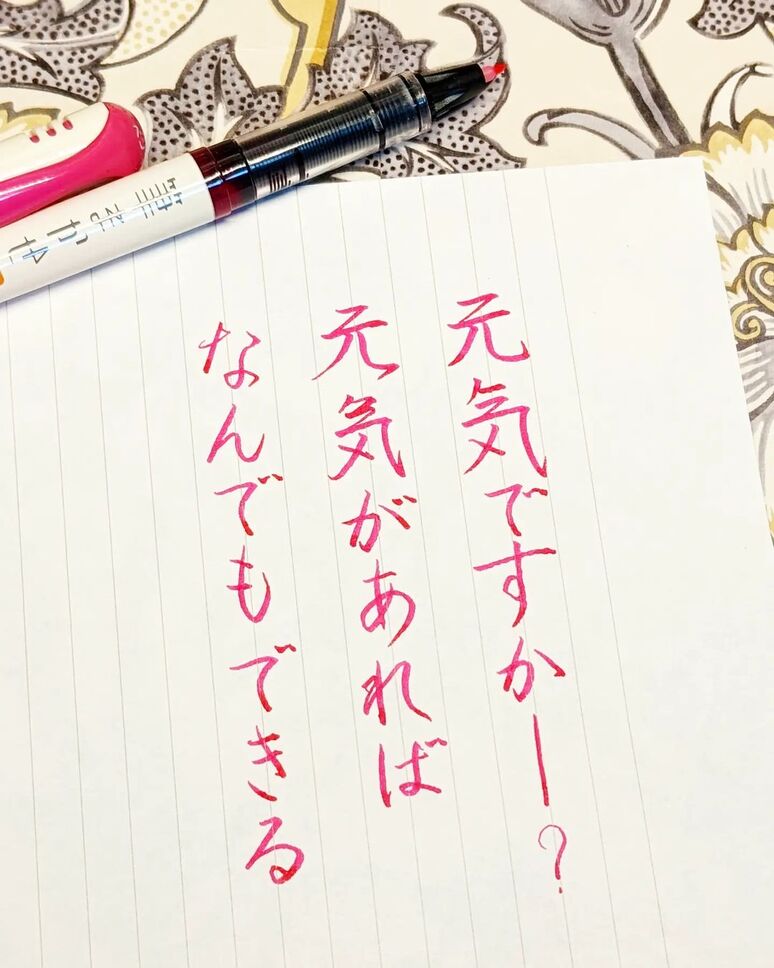 元気ですかー?
元気があれば
なんでもできる